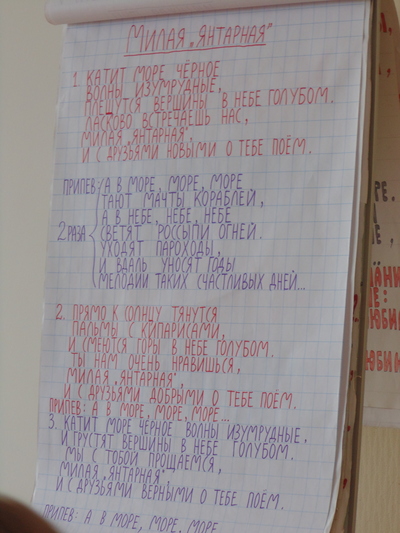 МИЛАЯ „ЯНТАРНАЯ"
1. КАТИТ МОРЕ ЧЁРНОЕ
ВОЛНЫ ИЗУМРУДНЫЕ,
ПЛЕЩУТСЯ ВЕРШИНЫ В НЕБЕ ГОЛУБОМ.
ЛАСКОВО ВСТРЕЧАЕШЬ НАС,
МИЛАЯ „ЯНТАРНАЯ",
И С ДРУЗЬЯМИ НОВЫМИ О ТЕБЕ ПОЁМ.
ПРИПЕВ: А В МОРЕ, МОРЕ, МОРЕ
ТАЮТ МАЧТЫ КОРАБЛЕЙ,
А В НЕБЕ, НЕБЕ, НЕБЕ
2 РАЗА СВЕТЯТ РОССЫПИ ОГНЕЙ.
УХОДЯТ ПАРОХОДЫ,
И ВДАЛЬ УНОСЯТ ГОДЫ
МЕЛОДИИ ТАКИХ СЧАСТЛИВЫХ ДНЕЙ...
2. ПРЯМО К СОЛНЦУ ТЯНУТСЯ
ПАЛЬМЫ С КИПАРИСАМИ,
И СМЕЮТСЯ ГОРЫ В НЕБЕ ГОЛУБОМ.
ТЫ НАМ ОЧЕНЬ НРАВИШЬСЯ,
МИЛАЯ „ЯНТАРНАЯ",
И С ДРУЗЬЯМИ ДОБРЫМИ О ТЕБЕ ПОЁМ.
ПРИПЕВ: А В МОРЕ, МОРЕ, МОРЕ...
3. КАТИТ МОРЕ ЧЁРНОЕ ВОЛНЫ ИЗУМРУДНЫЕ,
И ГРУСТЯТ ВЕРШИНЫ В НЕБЕ ГОЛУБОМ.
МЫ С ТОБОЙ ПРОЩАЕМСЯ,
МИЛАЯ „ЯНТАРНАЯ",
И С ДРУЗЬЯМИ ВЕРНЫМИ О ТЕБЕ ПОЁМ.
ПРИПЕВ: А В МОРЕ, МОРЕ, МОРЕ